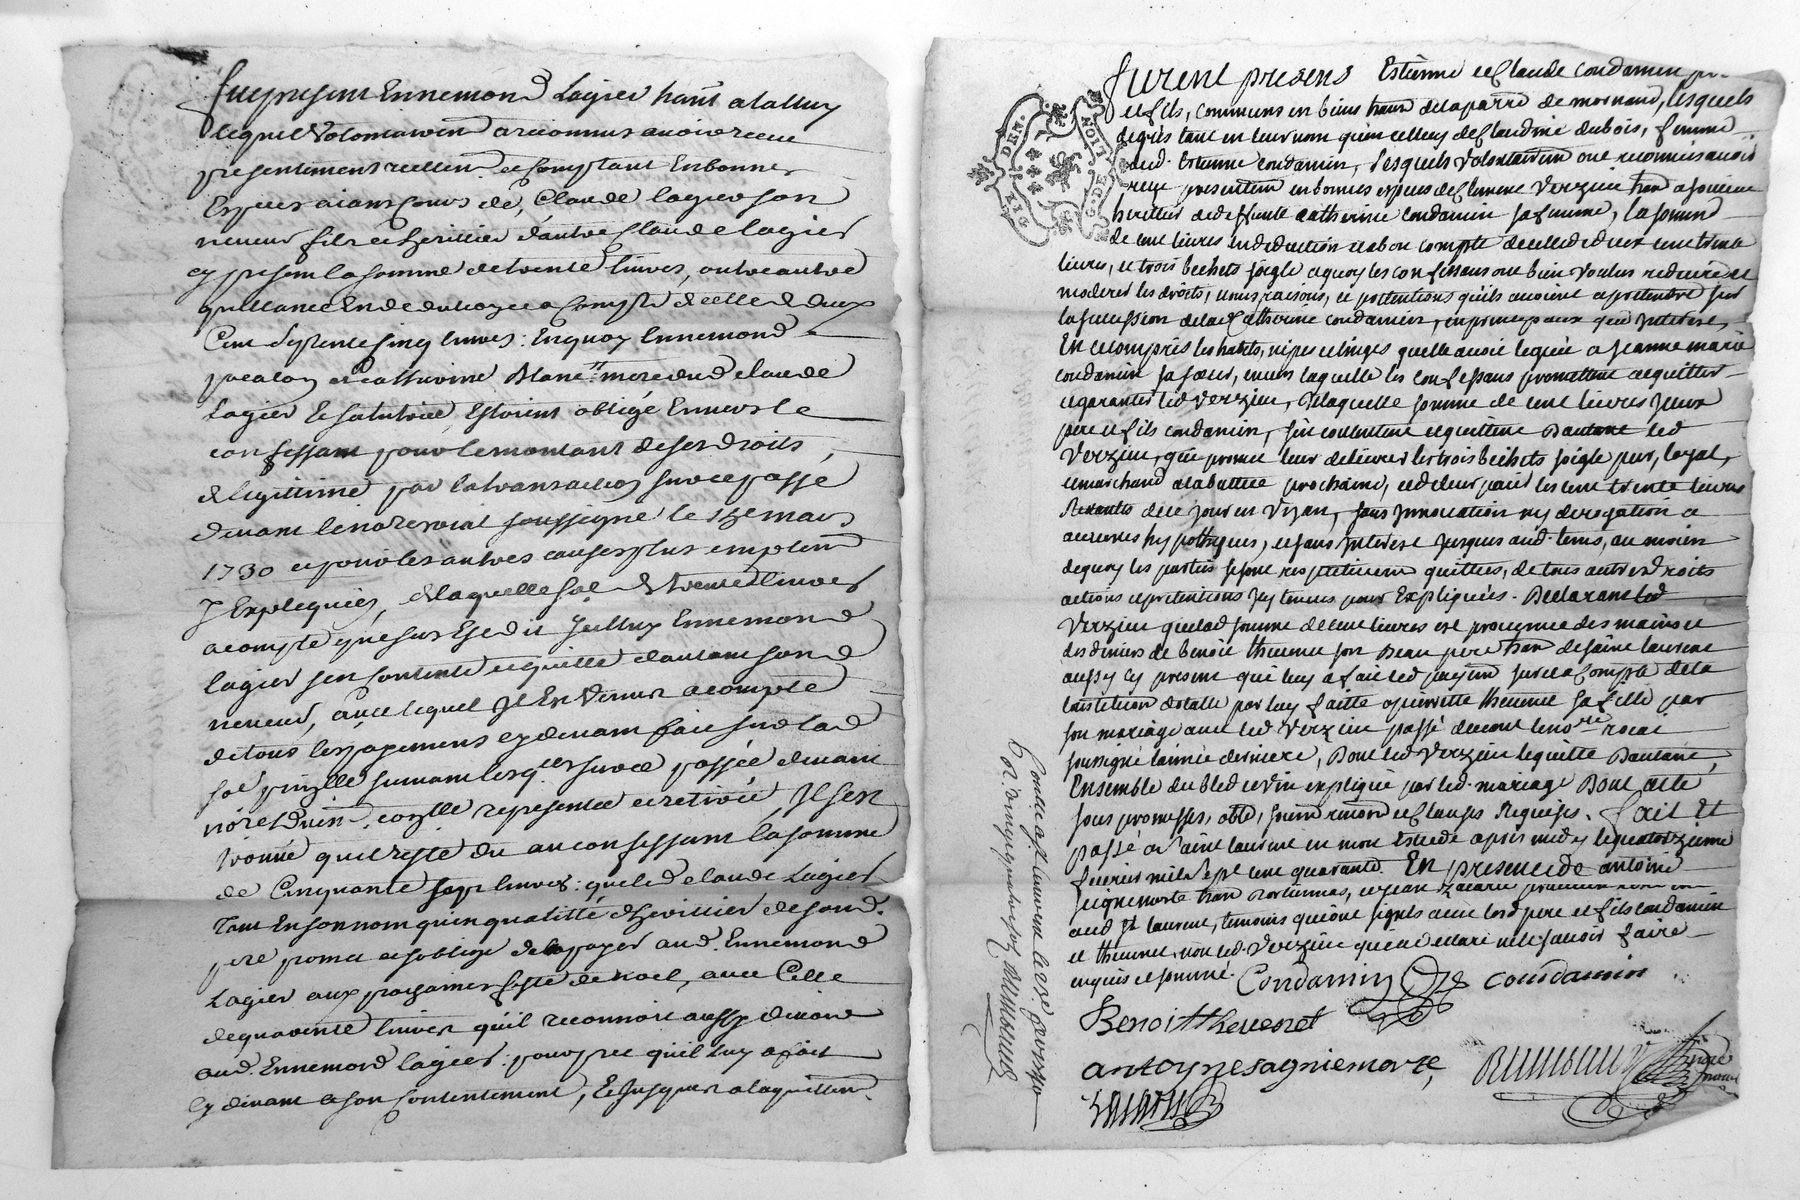 fut present Ennemond Lagier hant a lalluy
lequel volontairem a reconnus avoir receu
presentement reellem. et Comptant En bonnes
Especes aiant Cours de, Claude lagier son
neveux fils et heritier d'autre Claude lagier
cy present la somme de trente livres, outre autre
quittance En deduction et a Compte de celle de deux
Cent septente cinq livres: En quoy Ennemond
et catherine Blanc mere dud claude
Lagier Et sa tutrice, Estoient obligé Envers le
confessant pour le montant de ses droits,
de legittime par la transaction sur ce passé
devant le no.re roial soussigne le mars
1730 et pour les autres causes plus emplem
y Expliquées, de laquelle so.e de trente livres
a compte que sus Est dit Icelluy Ennemond
lagier s'en contente et quitte d'autant sond
neveux, avec lequel Il En Venus a compte
de tous les payemens cy devant fait sur lad
so.e suivant les q.ces sur ce passée devant
no.re icelle representée et retirée, Il s'est
trouvé qu'il reste du au confessant la somme
de Cinquante sept livres: que led claude Lagier
tant En son nom qu'en qualitté d'heritier de sond.
pere promet et s'oblige de la payer aud. Ennemond
Lagier aux prochaines feste de noel, avec Celle
de quarente livres qu'il reconnoit aussy devoir
aud. Ennemond lagier: pour pret qu'il luy a fait
cy devant a son contentement, Et Jusques a laquittem.
furent presens Estienne et Claude condamin pere
et fils, communs en biens hans de la parre de mornand, lesquels
de gres tant en leur nom qu'en celluy de Claudine dubois, femme
aud. Estienne condamin, lesquels volontairem ont reconnus avoir
reçu presentem en bonnes especes de Clement Verzieu han a
heritier de deffunte catherine condamin sa femme, la somme
de cent livres en deduction et a bon compte de celle de deux cent trente
livres, et trois bechets seigle a quoy les confessans ont bien voulus reduire et
moderer les droits, noms, raisons, et pretentions qu'ils avoient a pretendre sur
la succession de lad Catherine condamin, en principaux que Interest,
En ce compris les habits, nipes et linges quelle avoit leguée a Jeanne marie
condamin sa soeur, envers laquelle les confessans promettent acquitter
et garantir led verzieu, De laquelle somme de cent livres Iceux
pere et fils condamin, s'en contentent et quittent Dautant led
Verzieu, que promet leur delivrer les trois bechets seigle pur, loyal,
et marchand a la battue prochaine, et de leur païer les cent trente livres
Restantes de ce jour en Vn an, sans Innovation ny derogation a
aucunes hypotheques, et sans Interest Jusques aud. tems, au moien
de quoy les parties se sont respectivem quittées, de tous autres droits
actions et pretentions Icy tenues pour Expliquées. Declarant led
Verzieu que lad somme de cent livres est provenue des mains et
des deniers de benoit thevenet son Beau pere han de saint laurent
aussy cy present que luy a fait led payem sur et a Compte de la
constitution dotalle par luy faitte a pierrette thevenet sa fille par
son mariage avec led Verzieu passé devant le no.re roial
soussigné l'année derniere, Dont led Verzieu le quitte Dautant,
Ensemble du bled et vin expliqué par led. mariage Dont acte
sous promesses, oblõ, soum renon et clauses Requises. fait Et
passé a s.t laurent en mon Estude après midy le quatorzieme
fevrier mil sept cent quarante. En presence de antoine
seignemorte han, et jean Zacarie
aud s.t laurent, temoins qui ont signés avec lesd pere et fils condamin
et thevenet, non led. Verzieu qui a declaré ne le savoir faire
enquis et sommé. Condamin condamin
Benoit thevenet
antoyne sagniemorte,